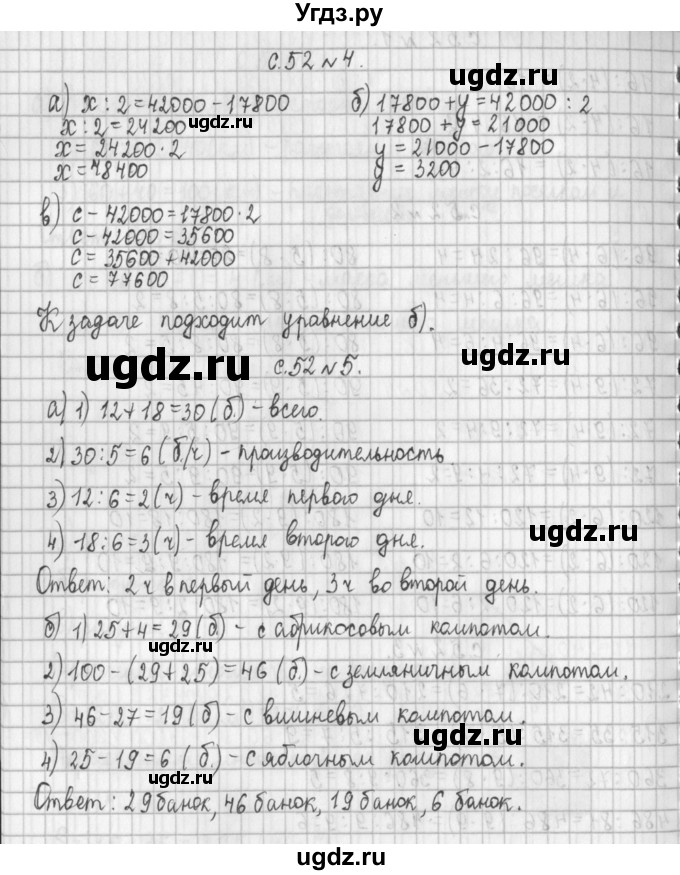 Угдз.ру
с.52 №4.
а) x : 2 = 42000 - 17800
x : 2 = 24200
x = 24200 · 2
x = 48400
б) 17800 + y = 42000 : 2
17800 + y = 21000
y = 21000 - 17800
y = 3200
ugdz.ru
ugdz.ru
в) c - 42000 = 17800 · 2
c - 42000 = 35600
c = 35600 + 42000
c = 77600
К задаче подходит уравнение б).
ugdz.ru
ugdz.ru
с.52 №5.
а) 1) 12 + 18 = 30 (б.) - всего.
2) 30 : 5 = 6 (б/ч) - производительность
3) 12 : 6 = 2 (ч) - время первого дня.
4) 18 : 6 = 3 (ч) - время второго дня.
ugdz.ru
Ответ: 2 ч в первый день, 3 ч во второй день.
б) 1) 25 + 4 = 29 (б.) - с абрикосовым компотом.
ugdz.ru
2) 100 - (29 + 25) = 46 (б.) - с земляничным компотом.
3) 46 - 27 = 19 (б) - с вишневым компотом.
ugdz.ru
4) 25 - 19 = 6 (б.) - с яблочным компотом.
ugdz.ru
Ответ: 29 банок, 46 банок, 19 банок, 6 банок.
ugdz.ru